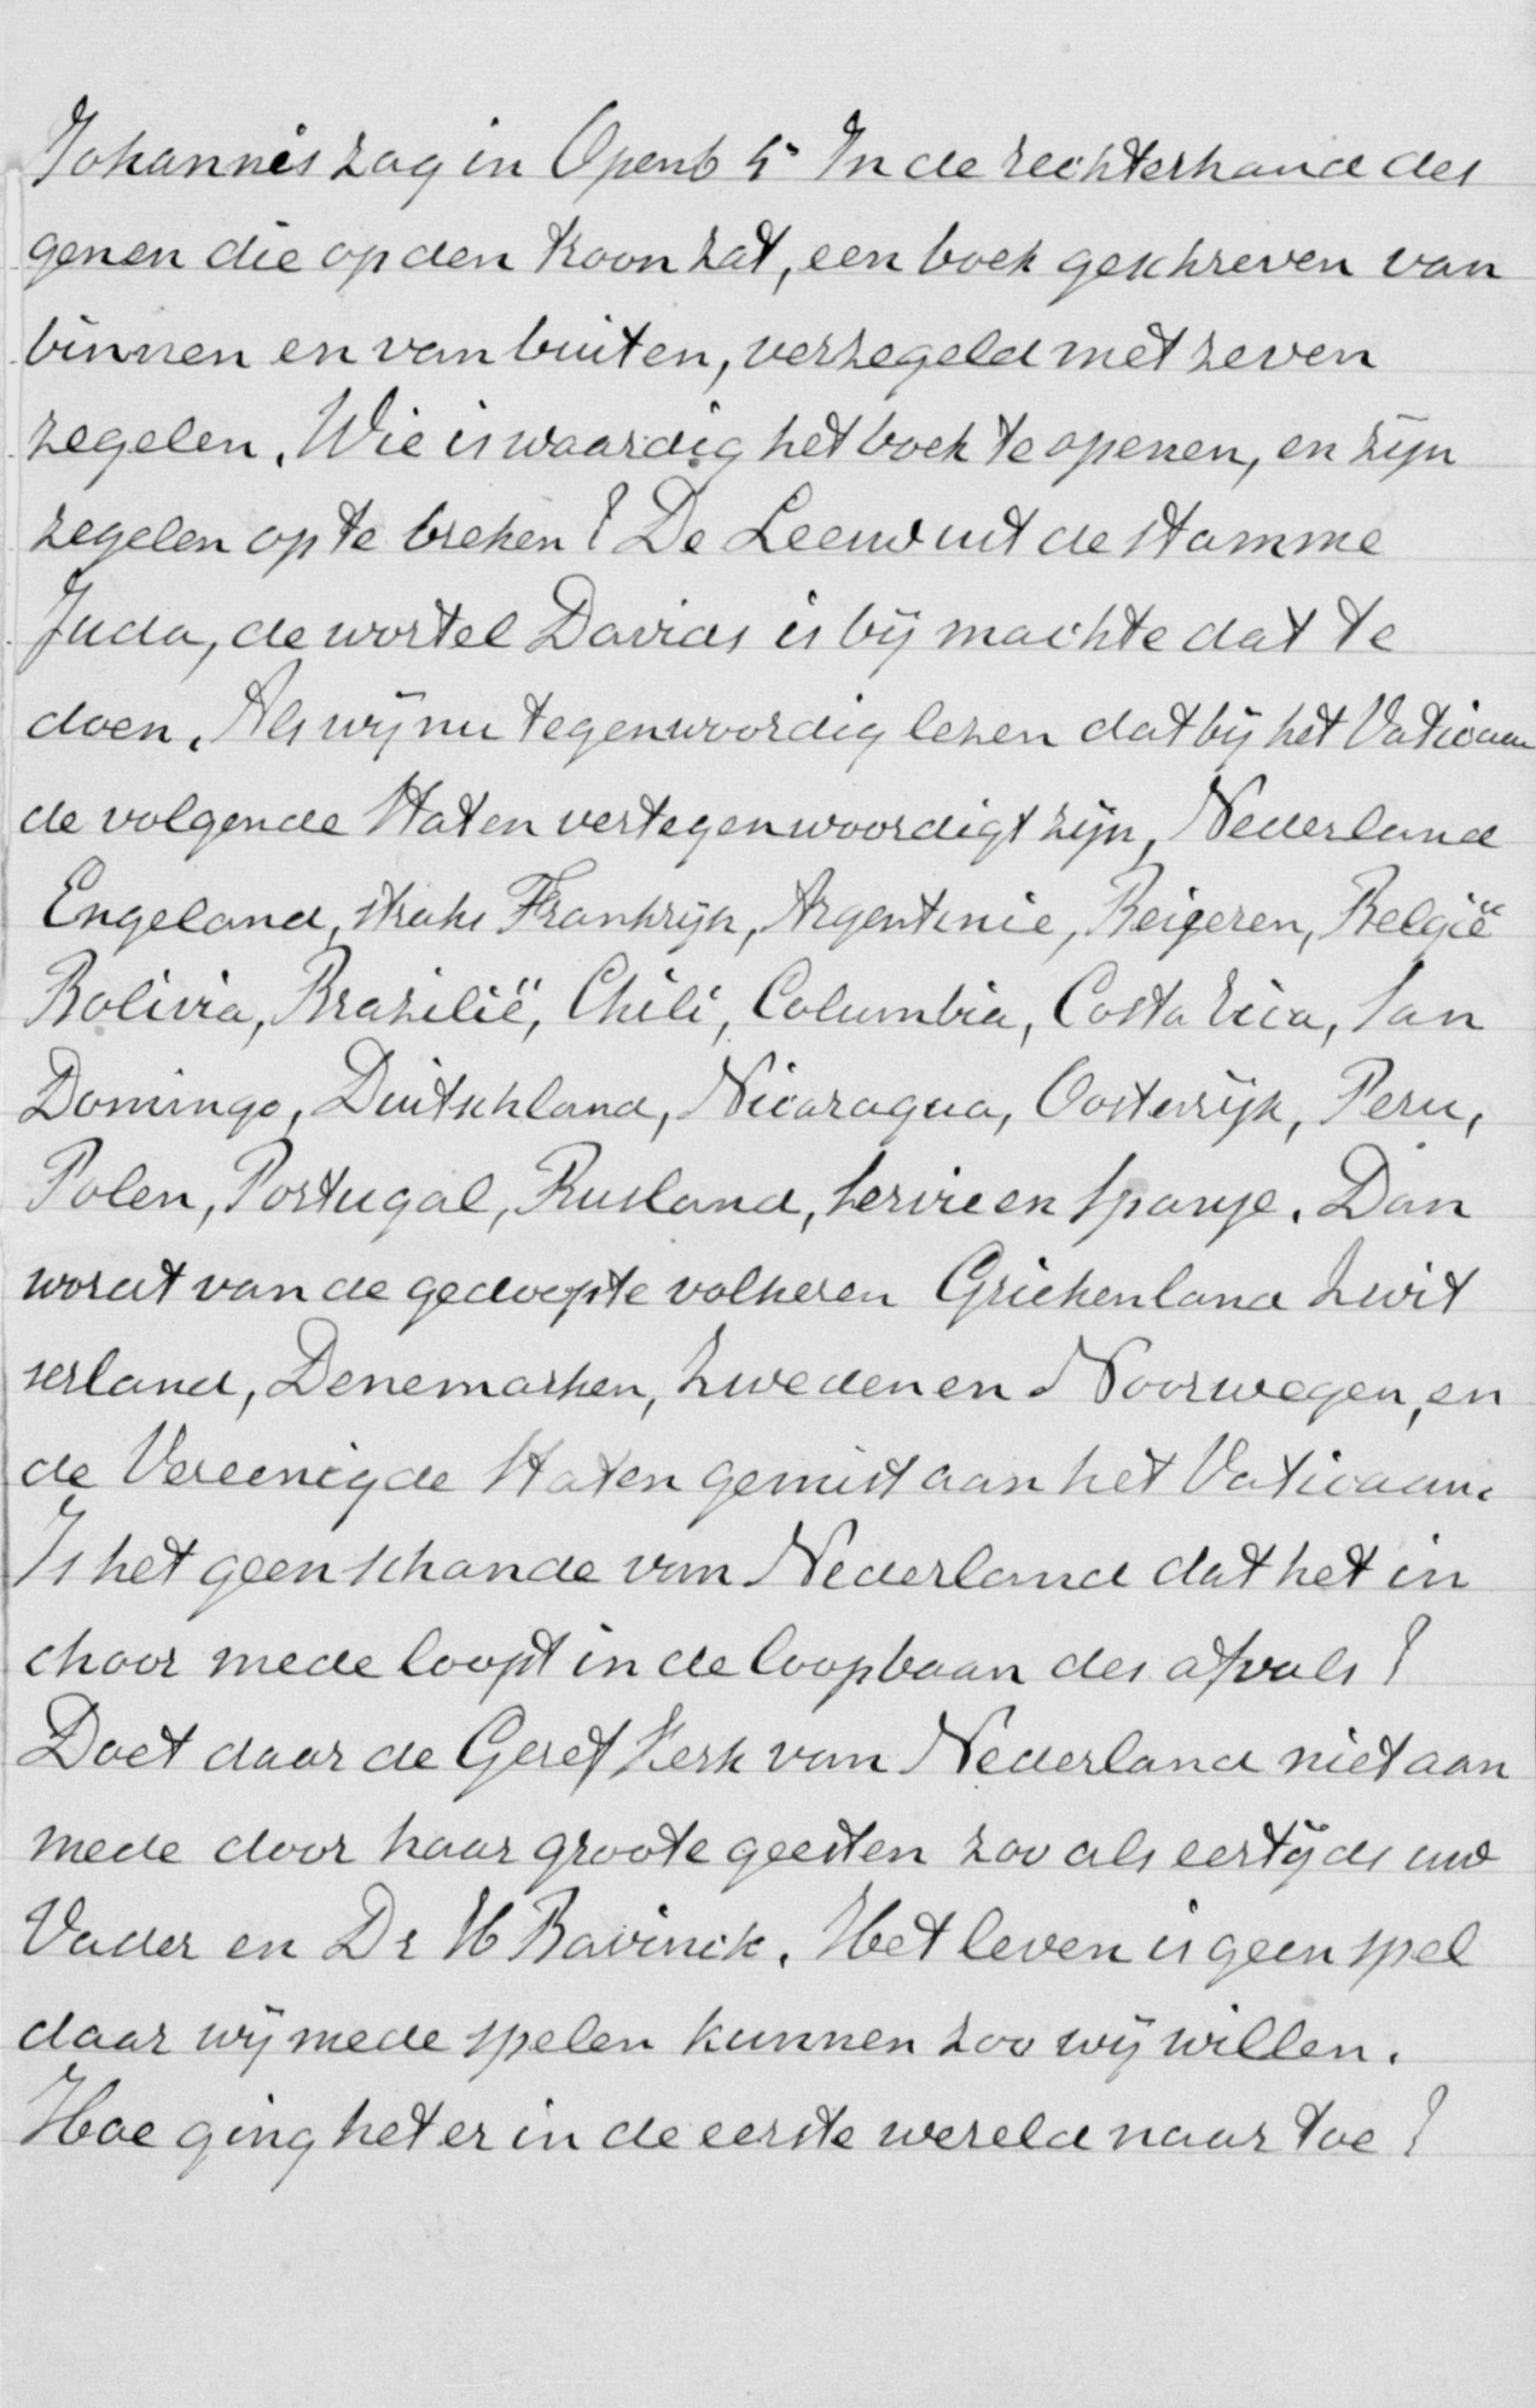 Johannes zag in Openb 5 In de rechterhand des
genen die op den troon zat, een boek geschreven van
binnen en van buiten, verzegeld met zeven
zegelen. Wie is waardig het boek te openen, en zijn
zegelen op te breken? De Leeuw uit de stamme
Juda, de wortel Davids is bij machte dat te
doen. Als wij nu tegenwoordig lezen dat bij het Vaticaan
de volgende Staten vertegenwoordigt zijn, Nederland
Engeland, straks Frankrijk, Argentinie, Beigeren, België
Bolivia, Brazilië, Chili, Columbia, Costa rica, San
Domingo, Duitschland, Nicaragua, Oostenrijk, Peru,
Polen, Portugal, Rusland, Servie en Spanje. Dan
wordt van de gedoopte volkeren Griekenland Zwit
serland, Denemarken, Zweden en Noorwegen, en
de Vereenigde Staten gemist aan het Vaticaan.
Is het geen schande van Nederland dat het in
choor mede loopt in de loopbaan des afvals?
Doet daar de Geref Kerk van Nederland niet aan
mede door haar groote geesten zoo als eertijds uw
Vader en Dr H Bavinck. Het leven is geen spel
daar wij mede spelen kunnen zoo wij willen.
Hoe ging het er in de eerste wereld naar toe?